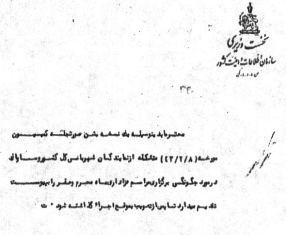 نخست وزیری
سازمان اطلاعات و امنیت کشور
محترما بدینوسیله یک نسخه متن صورتجلسه کمیسیون
مورخه (۴۲/۲/۸) متشکله از نمایندگان شهربانی کل کشور و ساواک
در مورد چگونگی برگزاری مراسم عزاداری ماه محرم و صفر را بپیوست
تقدیم میدارد تا پس از تصویب بموقع اجرا گذاشته شود